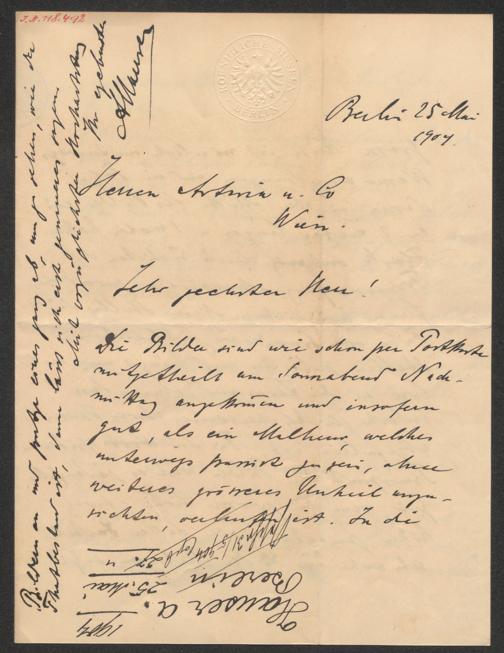 I.N. 118.492
KOENIGLICHE MUSEEN
BERLIN
Berlin 25 Mai
1904.
Herren Artaria u. Co
Wien.
Sehr geehrter Herr!
Die Bilder sind wie schon per Postkarte
mitgetheilt am Sonnabend Nach-
mittag angekommen und insofern
gut, als ein Malheur, welches
unterwegs passirt zu sein, ohne
weiteres grösseres Unheil anzu-
richten, verlaufen ist. In die
Bildern an und
Thatbestand ist, dann lässt sich erst genaueres sagen.
Mit vorzüglichster Hochachtung
Ihr ergebenster
A Hauser
Hauser A.
Berlin
25. Mai
1904